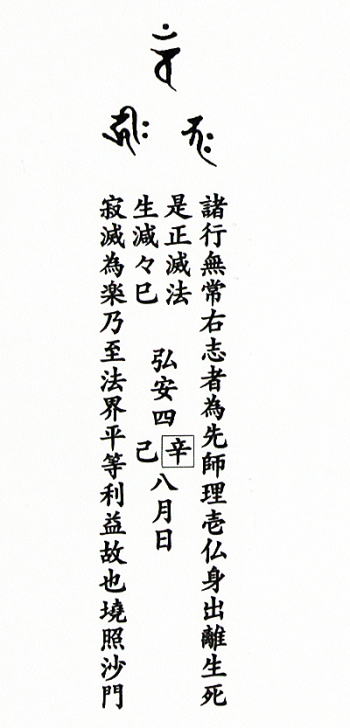 諸行無常右志者為先師理壱仏身出離生死
是正滅法
生減々巳
弘安四辛己八月日
寂滅為楽乃至法界平等利益故也墝照沙門